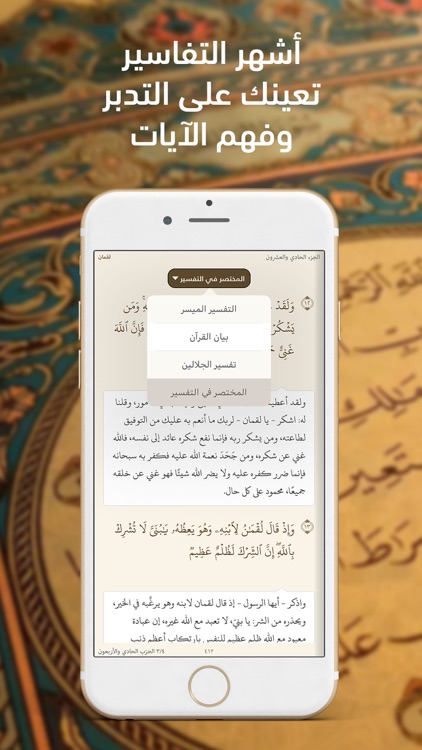 أشهر التفاسير
تعينك على التدبر
وفهم الآيات
الجزء الحادي والعشرون
لقمان
المختصر في التفسير
التفسير الميسر
بيان القرآن
تفسير الجلالين
المختصر في التفسير
١٢
وَلَقَدْ وَمَن
يَشْكُرْ فَإِنَّ ٱللَّهَ
غَنِيٌّ
ولقد أعطينا مور، وقلنا
له: اشكر - يا لقمان - لربك ما أنعم به عليك من التوفيق
لطاعته، ومن يشكر ربه فإنما نفع شكره عائد إلى نفسه، فالله
غني عن شكره، ومن جَحَدَ نعمة الله عليه فكفر به سبحانه
فإنما ضرر كفره عليه ولا يضر الله شيئًا فهو غني عن خلقه
جميعًا، محمود على كل حال.
١٣
وَإِذْ قَالَ لُقْمَٰنُ لِٱبْنِهِۦ وَهُوَ يَعِظُهُۥ يَٰبُنَيَّ لَا تُشْرِكْ
بِٱللَّهِۖ إِنَّ ٱلشِّرْكَ لَظُلْمٌ عَظِيمٌ
واذكر - أيها الرسول - إذ قال لقمان لابنه وهو يرغِّبه في الخير،
ويحذره من الشر: يا بنيّ، لا تعبد مع الله غيره، إن عبادة
معبود مع الله ظلم عظيم للنفس بارتكاب أعظم ذنب
٤١٢
٣/٤ الحزب الحادي والأربعون